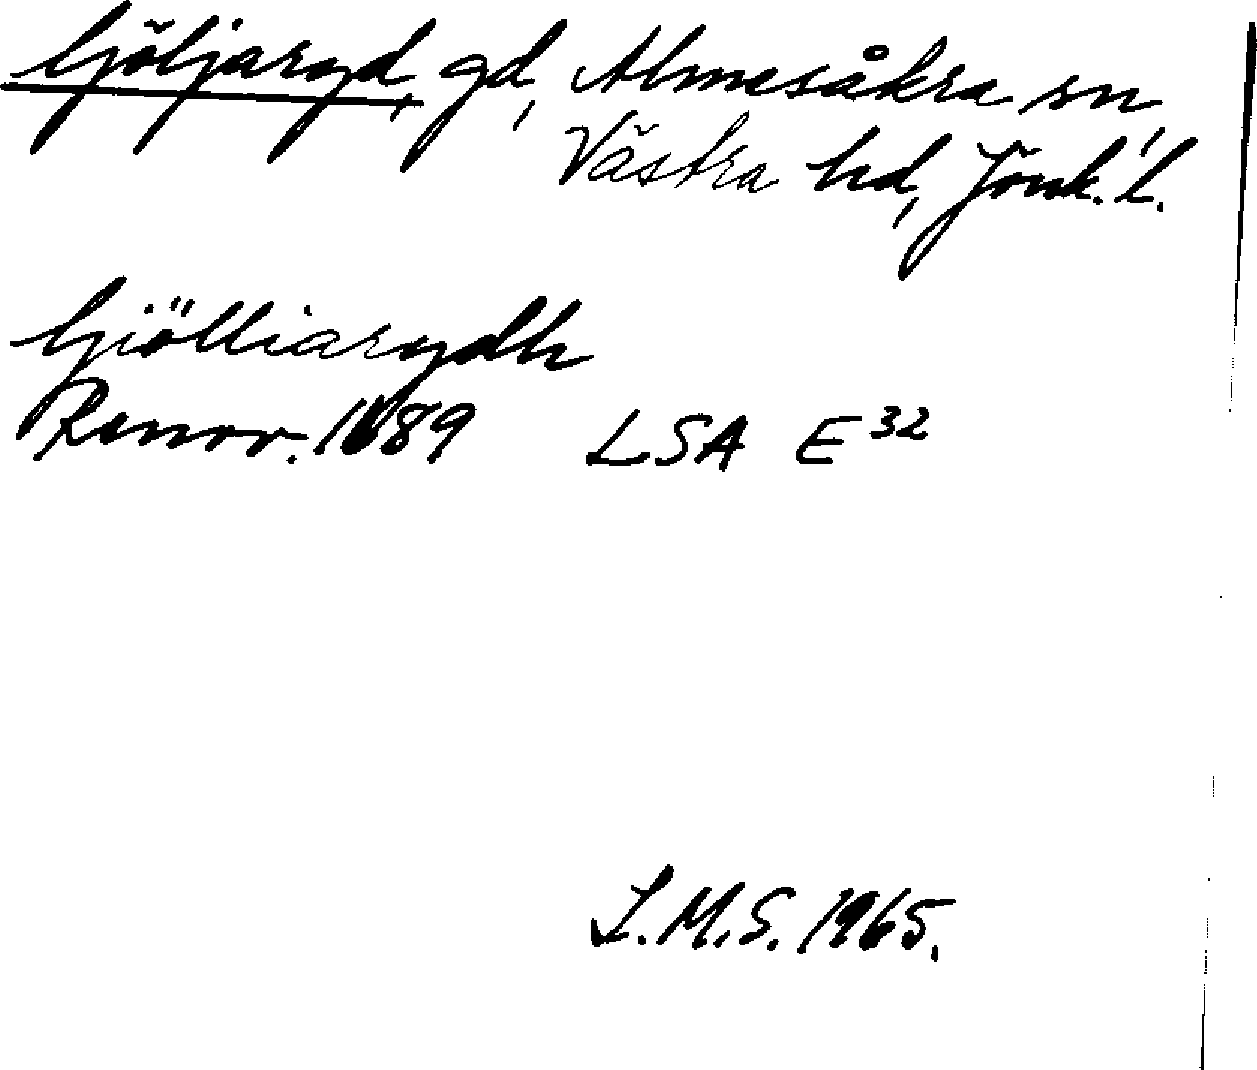 Göljaryd, gd, Almesåkra sn,
Västra hd, Jönk. l.
Giölliarydh
Renov. 1689 LSA E 32
L.M.S. 1965.